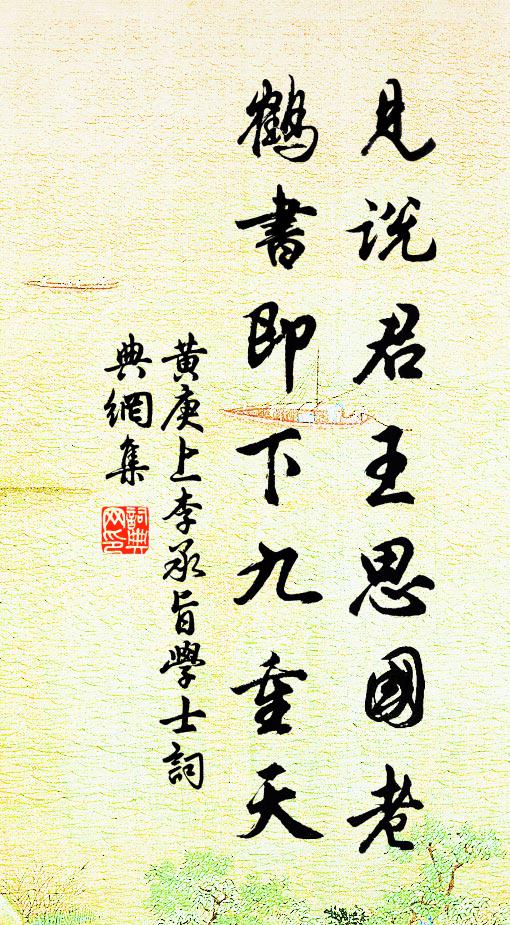 見説君王思國老
鶴書即下九重天
黄庚上李承旨學士詞
典網集
詞典
网印